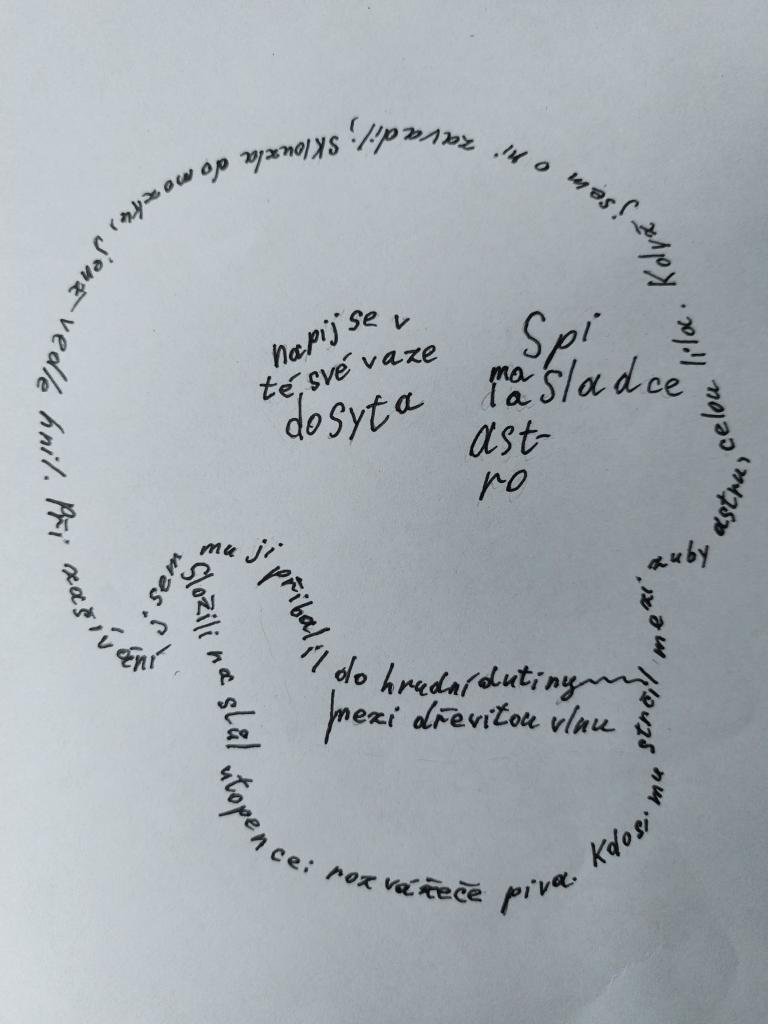 Složili na stůl utopence: rozvážeče piva. Kdosi mu strčil mezi zuby astru, celou lila. Když jsem o ni zavadil; sklouzla do mozku, jenž vedle hnil. Při zašívání jsem mu ji přibalil do hrudní dutiny
mezi dřevitou vlnu
napij se v
té své vaze
dosyta
Spi
ma
la sladce
ast-
ro